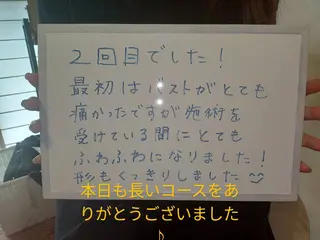 2回目でした!
最初はバストがとても
痛かったですが施術を
受けている間にとても
ふわふわになりました!
形もくっきりしました
本日も長いコースをあ
りがとうございました
♪